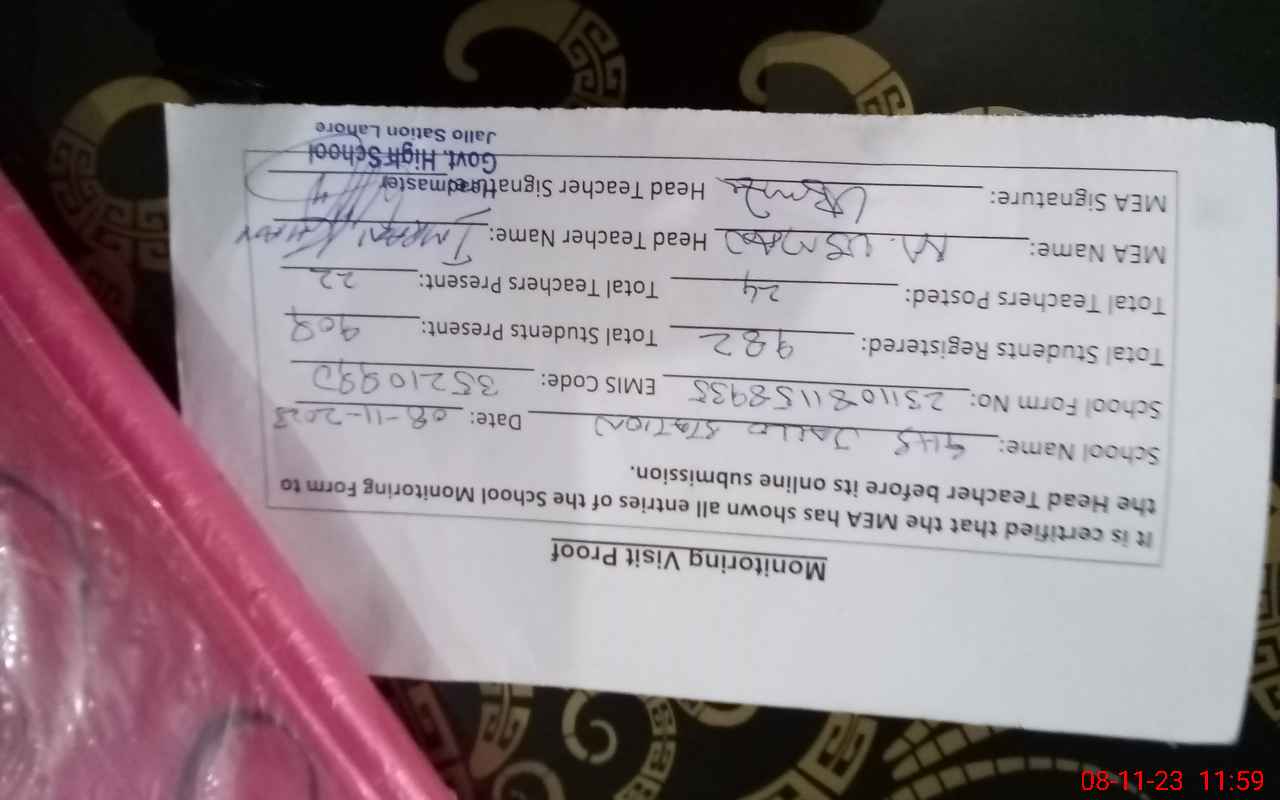 Monitoring Visit Proof
It is certified that the MEA has shown all entries of the School Monitoring Form to
the Head Teacher before its online submission.
School Name: GHS JALLO STATION Date: 08-11-2023
School Form No: 2311081158935 EMIS Code:
Total Students Registered: 982 Total Students Present: 908
Total Teachers Posted: 24 Total Teachers Present: 22
MEA Name: M. USMAN Head Teacher Name: IMRAN KHAN
MEA Signature: Head Teacher Signature:
Headmaster
Govt. High School
Jallo Sation Lahore
08-11-23 11:59